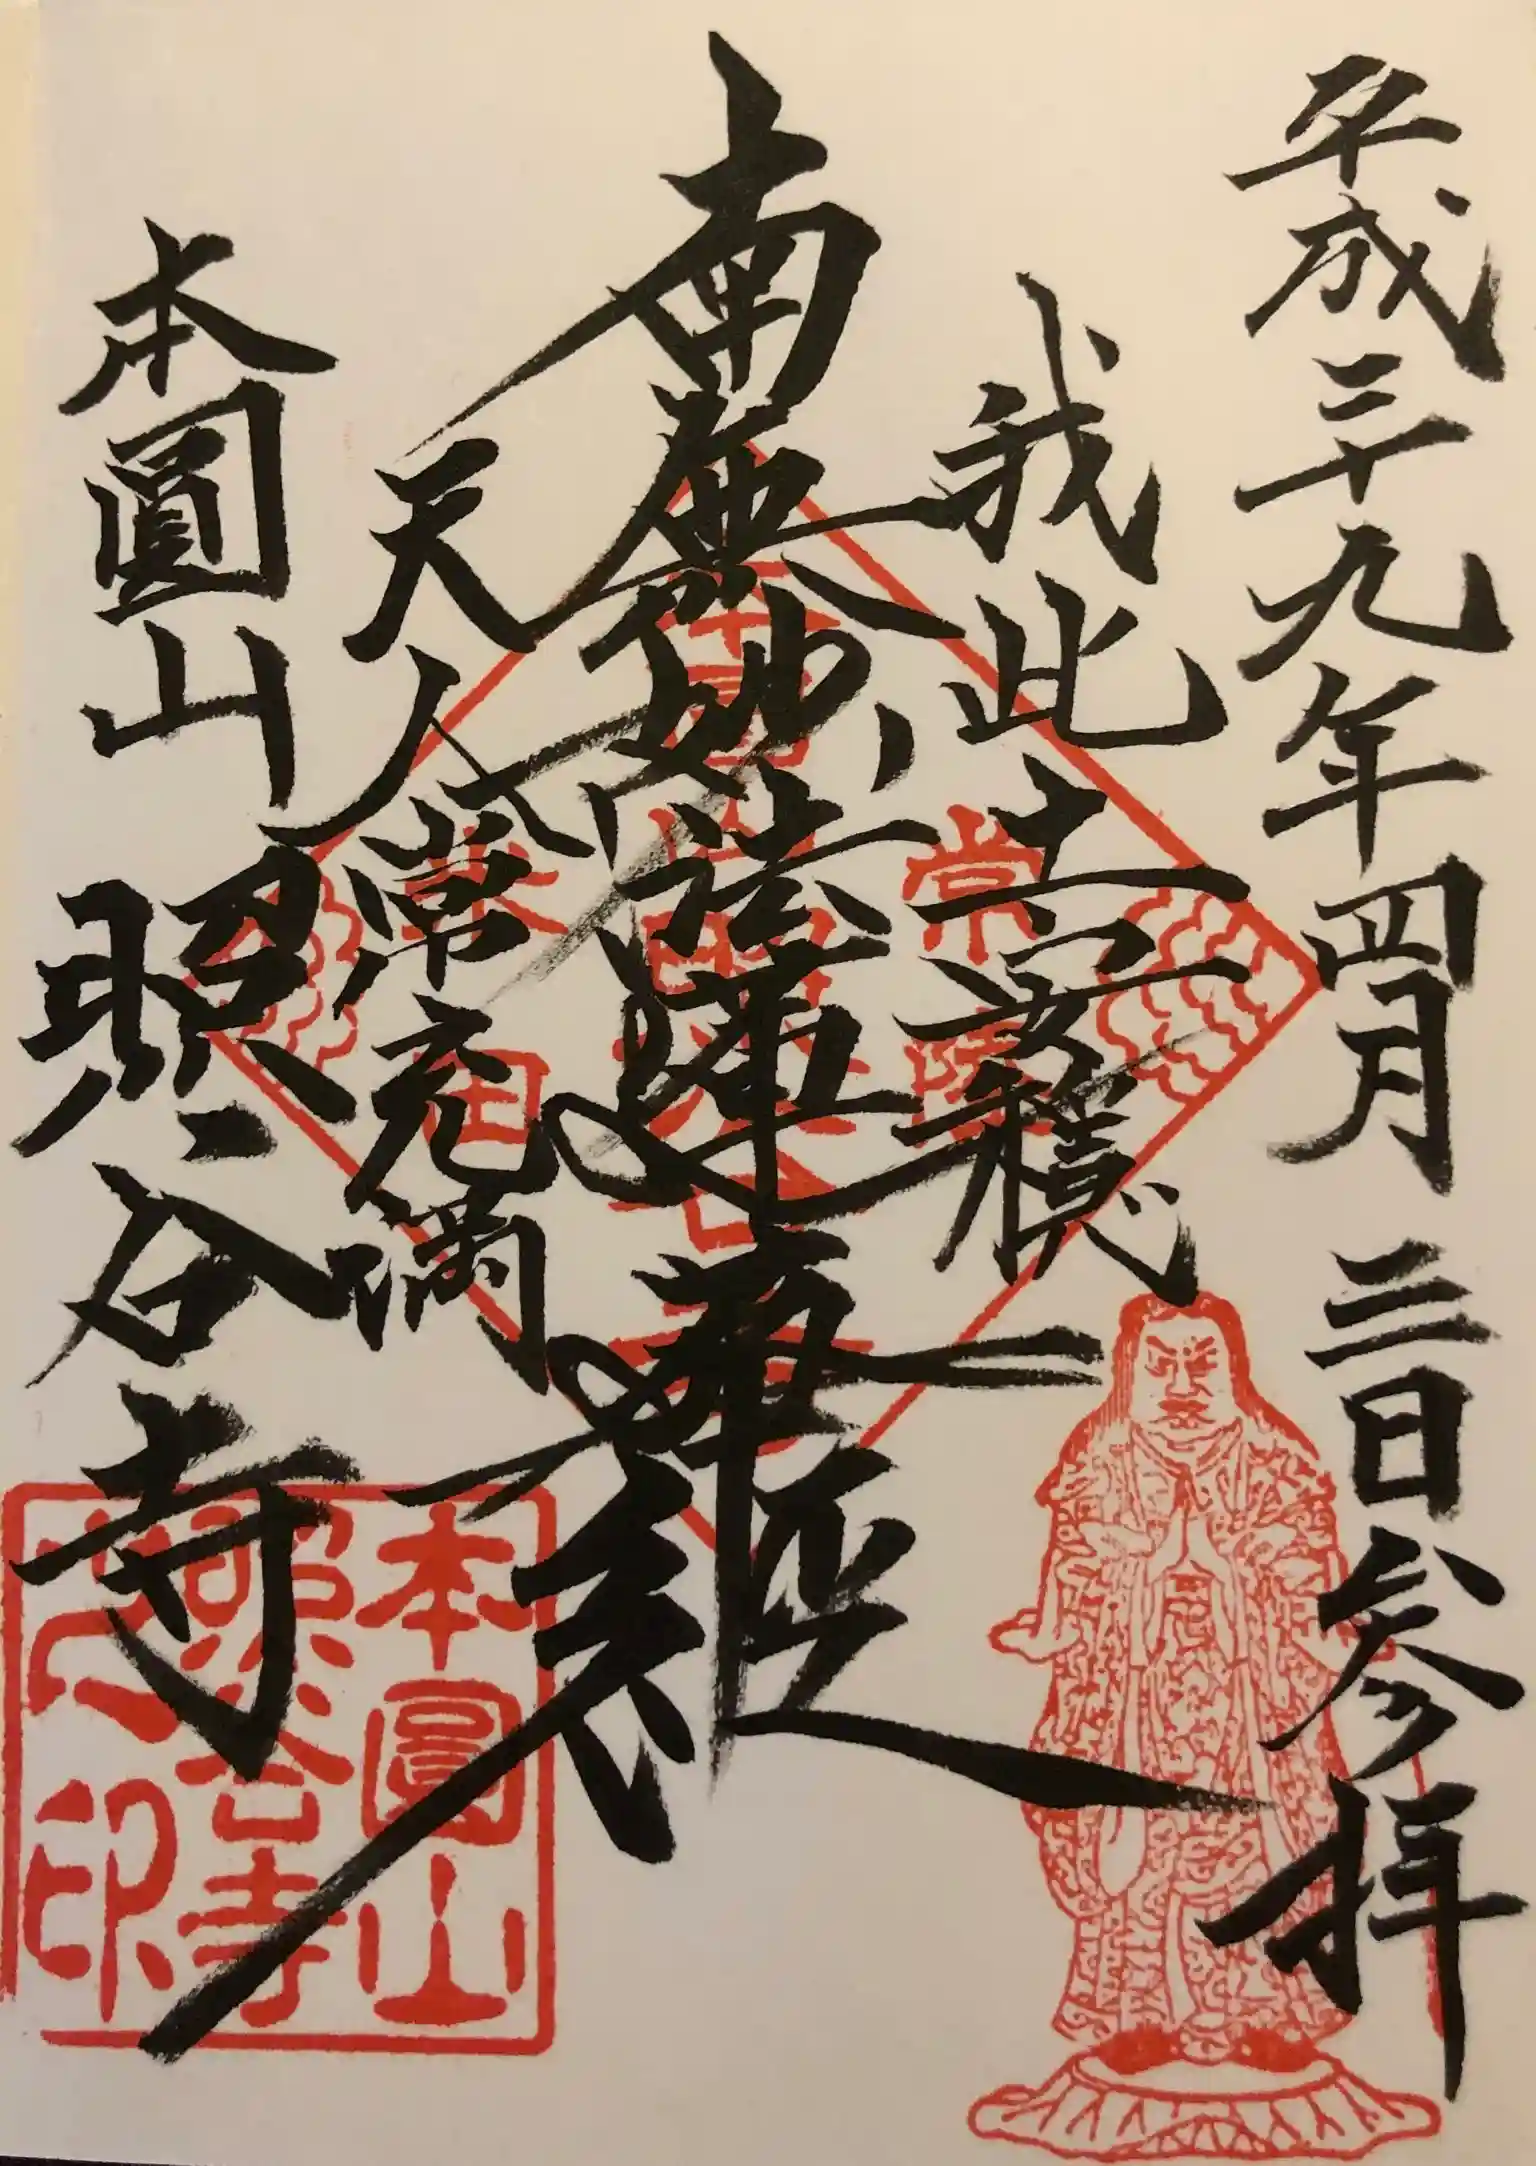 平成二十九年四月三日参拝
我此土安穏
南無妙法蓮華経
天人常充満
本圓山 照谷寺
本圓山
照谷寺
之印